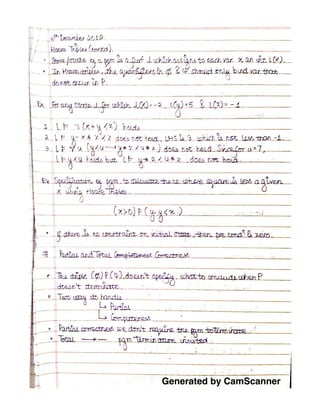 6th December 2020
Hoare Triples (contd).
of a pgm is a func l which assigns to each var. x an int l(x).
In Hoare triples, the quantifiers in Φ & Ψ should only bind var. that
do not occur in P.
Ex For any state l for which l(x) = -2, l(y) = 5 & l(z) = -1
1. l ⊨ ¬(x+y<z) holds
2. l ⊨ y - x * z < z does not hold, LHS is 3 which is not less than -1.
3. l ⊨ ∀u (y<u → y*z < u*z) does not hold. Since for u=7,
l ⊨ y<u holds but l ⊨ y*z < u*z does not hold.
Ex Specification of pgm. to calculate the no. whose square is less a given
x using Hoare Triples.
(x>0) P (y·y<x)
If there is no constraint on initial state, then pre cond is
Partial and Total Correctness
The triple (Φ) P (Ψ) doesn't specify what to conclude when P
doesn't terminate.
Two way to handle
↳ Partial
↳ Completeness
Partial correctness we don't require the pgm to terminate.
Total —"— pgm termination
Generated by CamScanner